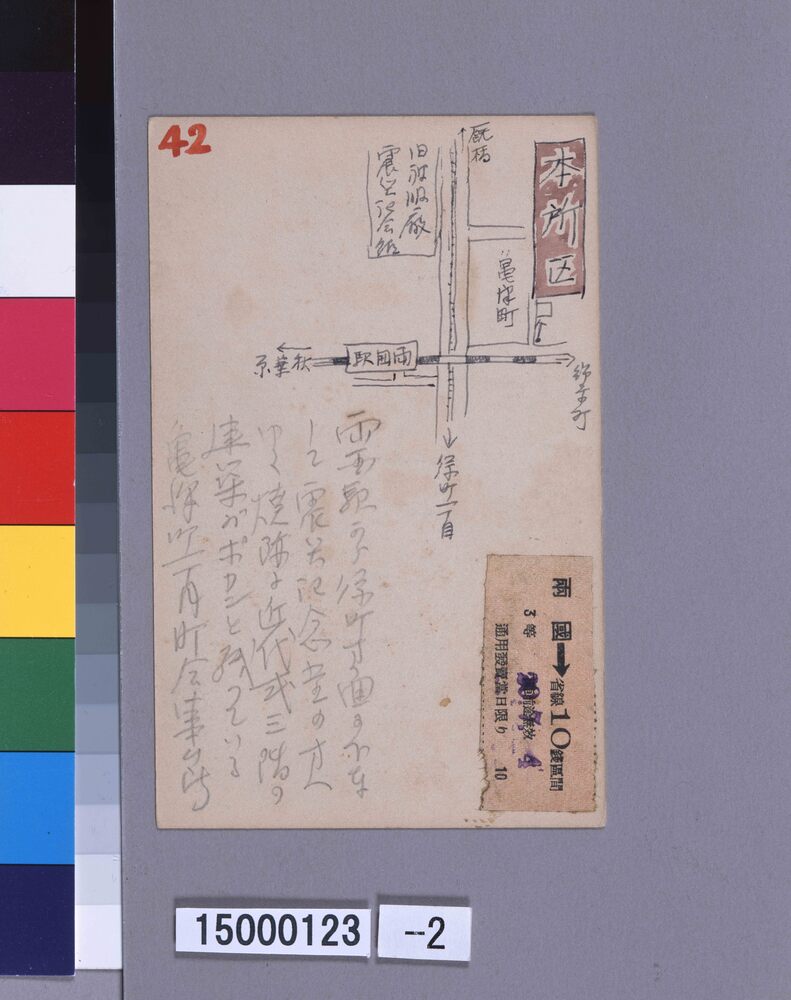 42
本所区
厩橋
旧被服廠
震災記念館
亀沢町
両国駅
秋葉原
錦糸町
緑町一丁目
両国駅から緑町方面
して震災記念堂の方へ
ゆく焼跡に近代式三階の
建築がポカンと残っている
亀沢町一丁目町会事ム所
兩國➡省線10錢區間
3等
通用發賣當日限り
10
15000123
-2